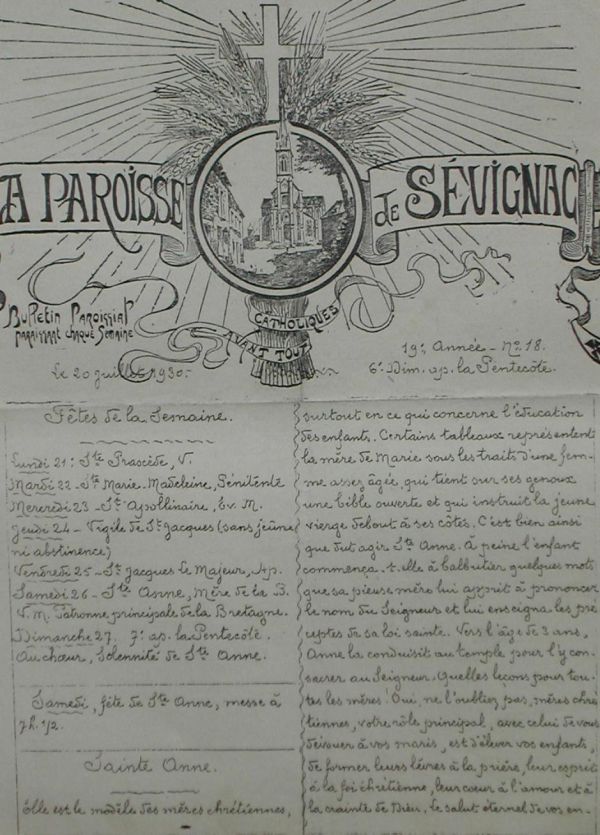 A PAROISSE
de SÉVIGNAC
Bulletin Paroissial
PARAISSANT CHAQUE SEMAINE
CATHOLIQUES
AVANT TOUT
Le 20 juillet 1930.
19e Année - No 18.
6e Dim. ap. la Pentecôte.
Fêtes de la Semaine.
Lundi 21: Ste Praxède, V.
Mardi 22 - Ste Marie-Madeleine, Pénitente
Mercredi 23 - St Apollinaire, Ev. M.
Jeudi 24 - Vigile de St Jacques (sans jeûne
ni abstinence)
Vendredi 25 - St Jacques le Majeur, Ap.
Samedi 26 - Ste Anne, Mère de la B.
V. M. Patronne principale de la Bretagne.
Dimanche 27. 7e ap. la Pentecôte.
Au chœur, Solennité de Ste Anne.
Samedi, fête de Ste Anne, messe à
7h. 1/2.
Sainte Anne.
Elle est le modèle des mères chrétiennes,
surtout en ce qui concerne l'éducation
des enfants. Certains tableaux représentent
la mère de Marie sous les traits d'une fem-
me assez âgée, qui tient sur ses genoux
une bible ouverte et qui instruit la jeune
vierge debout à ses côtés. C'est bien ainsi
que dut agir Ste Anne. À peine l'enfant
commença-t-elle à balbutier quelques mots
que sa pieuse mère lui apprit à prononcer
le nom du Seigneur et lui enseigna les pré
ceptes de sa loi sainte. Vers l'âge de 3 ans,
Anne la conduisit au temple pour l'y con-
sacrer au Seigneur. Quelles leçons pour tou-
tes les mères! Oui, ne l'oubliez pas, mères chré
tiennes, votre rôle principal, avec celui de vous
dévouer à vos maris, est d'élever vos enfants,
de former leurs lèvres à la prière, leur esprit
à la foi chrétienne, leur cœur à l'amour et à
la crainte de Dieu. Le salut éternel de vos en-